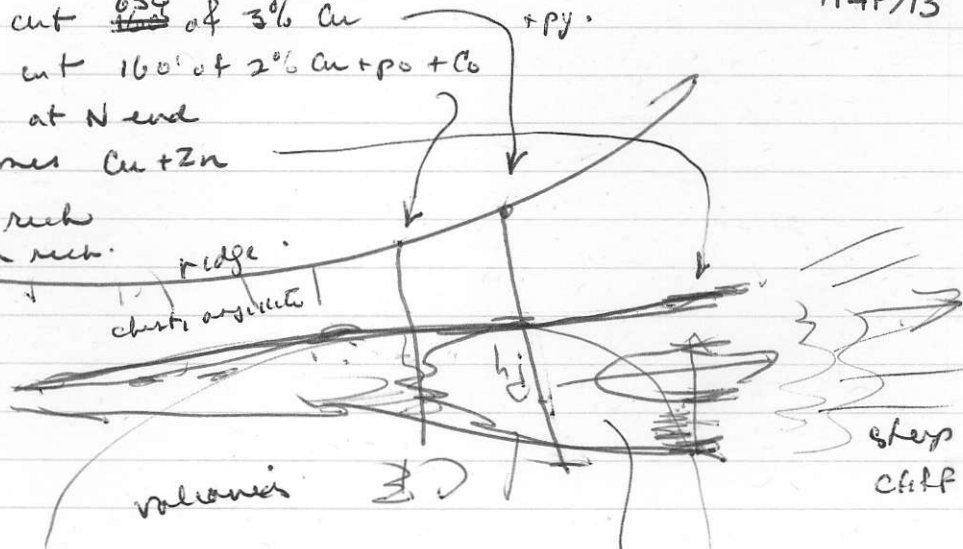 cut of 3% Cu
+py.
cut 160' of 2% Cu + po + Co
at N end
Cu + Zn
rich
rich.
ridge
chert, argillite
volcanics
steep
cliff